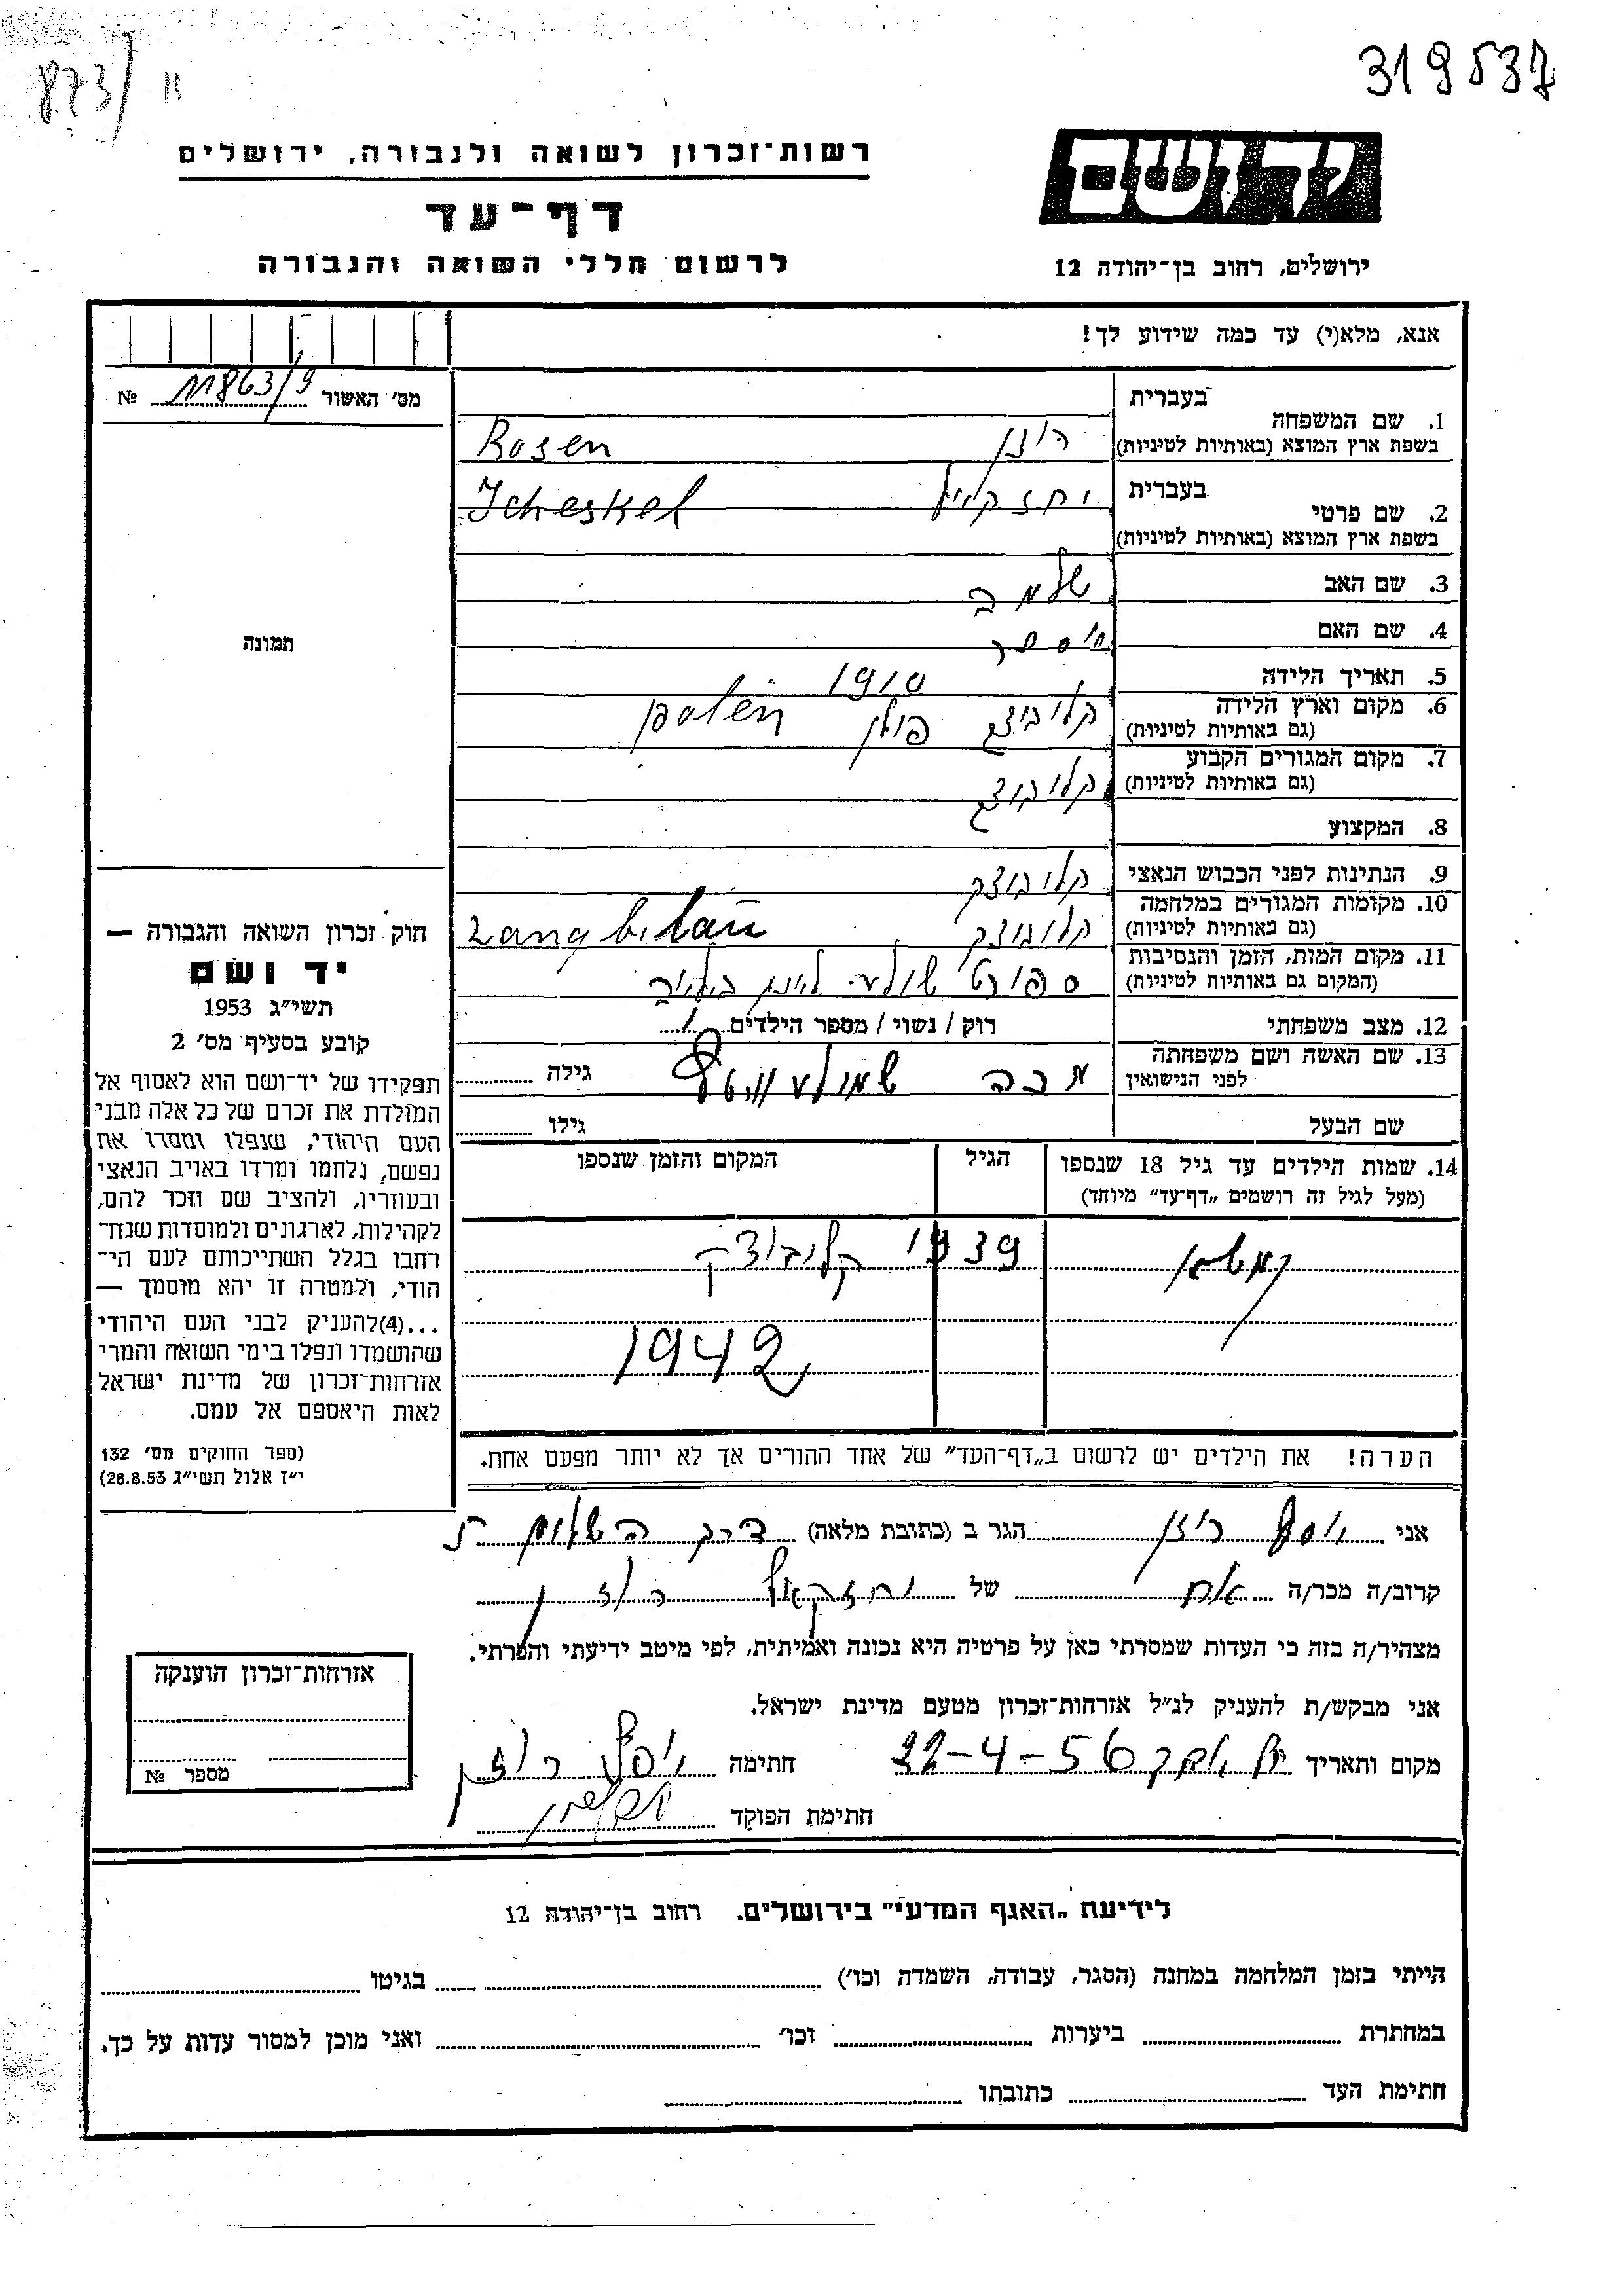 873/11
319537
ידושם
ירושלים, רחוב בן־יהודה 12
רשות־זכרון לשואה ולגבורה, ירושלים
דף־עד
לרשום חללי השואה והגבורה
אנא, מלא(י) עד כמה שידוע לך!
מס' האשור 11863/9 №
תמונה
חוק זכרון השואה והגבורה —
יד ושם
תשי"ג 1953
קובע בסעיף מס' 2
תפקידו של יד־ושם הוא לאסוף אל
המולדת את זכרם של כל אלה מבני
העם היהודי, שנפלו ומסרו את
נפשם, נלחמו ומרדו באויב הנאצי
ובעוזריו, ולהציב שם וזכר להם,
לקהילות, לארגונים ולמוסדות שנח־
רבו בגלל השתייכותם לעם הי־
הודי, ולמטרה זו יהא מוסמך —
...(4)להעניק לבני העם היהודי
שהושמדו ונפלו בימי השואה והמרי
אזרחות־זכרון של מדינת ישראל
לאות היאספם אל עמם.
(ספר החוקים מס' 132
י"ז אלול תשי"ג 28.8.53)
בעברית
1. שם המשפחה
בשפת ארץ המוצא (באותיות לטיניות) רוזן Rosen
בעברית יחזקאל Icheskel
2. שם פרטי
בשפת ארץ המוצא (באותיות לטיניות)
3. שם האב שלמה
4. שם האם אסתר
5. תאריך הלידה 1910
6. מקום וארץ הלידה קלובוצק פולן polen
(גם באותיות לטיניות)
7. מקום המגורים הקבוע קלובוצק
(גם באותיות לטיניות)
8. המקצוע
9. הנתינות לפני הכבוש הנאצי קלובוצק
10. מקומות המגורים במלחמה קלובוצק
(גם באותיות לטיניות)
11. מקום המות, הזמן והנסיבות
(המקום גם באותיות לטיניות) ספורט שולע
12. מצב משפחתי רוק / נשוי / מספר הילדים 1
13. שם האשה ושם משפחתה
לפני הנישואין גילה
שם הבעל גילו
14. שמות הילדים עד גיל 18 שנספו הגיל המקום והזמן שנספו
(מעל לגיל זה רושמים „דף־עד” מיוחד)
1939 קלובוצק
1942
הערה! את הילדים יש לרשום ב„דף־העד” של אחד ההורים אך לא יותר מפעם אחת.
אני יוסף רוזן הגר ב (כתובת מלאה) דרך השלום
קרוב/ה מכר/ה אח של יחזקאל רוזן
מצהיר/ה בזה כי העדות שמסרתי כאן על פרטיה היא נכונה ואמיתית, לפי מיטב ידיעתי והכרתי.
אני מבקש/ת להעניק לנ"ל אזרחות־זכרון מטעם מדינת ישראל.
מקום ותאריך 22-4-56 חתימה יוסף רוזן
חתימת הפוקד
אזרחות־זכרון הוענקה
מספר №
לידיעת „האגף המדעי” בירושלים. רחוב בן־יהודה 12
הייתי בזמן המלחמה במחנה (הסגר, עבודה, השמדה וכו') בגיטו
במחתרת ביערות וכו' ואני מוכן למסור עדות על כך.
חתימת העד כתובתו